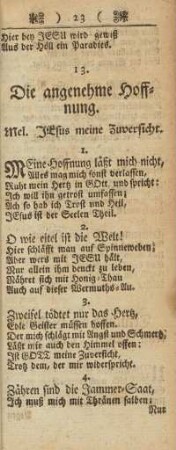 ) 23 (
Hier bey JESU wird gewiß
Aus der Höll ein Paradies.
13.
Die angenehme Hoff-
nung.
Mel. JEsus meine Zuversicht.
1.
MEine-Hoffnung läßt mich nicht,
Alles mag mich sonst verlassen,
Ruht mein Hertz in GOtt, und spricht:
Ich will ihn getrost umfassen;
Ach so hab ich Trost und Heil,
JEsus ist der Seelen Theil.
2.
O wie eitel ist die Welt!
Hier schläfft man auf Spinneweben;
Aber wers mit JESU hält,
Nur allein ihm denckt zu leben,
Nähret sich mit Honig-Thau
Auch auf dieser Wermuths-Au.
3.
Zweifel tödtet nur das Hertz,
Edle Geister müssen hoffen.
Der mich schlägt mit Angst und Schmertz,
Läßt mir auch den Himmel offen:
Ist GOTT meine Zuversicht,
Trotz dem, der mir widerspricht.
4.
Zähren sind die Jammer-Saat,
Ich muß mich mit Thränen salben:
Nur